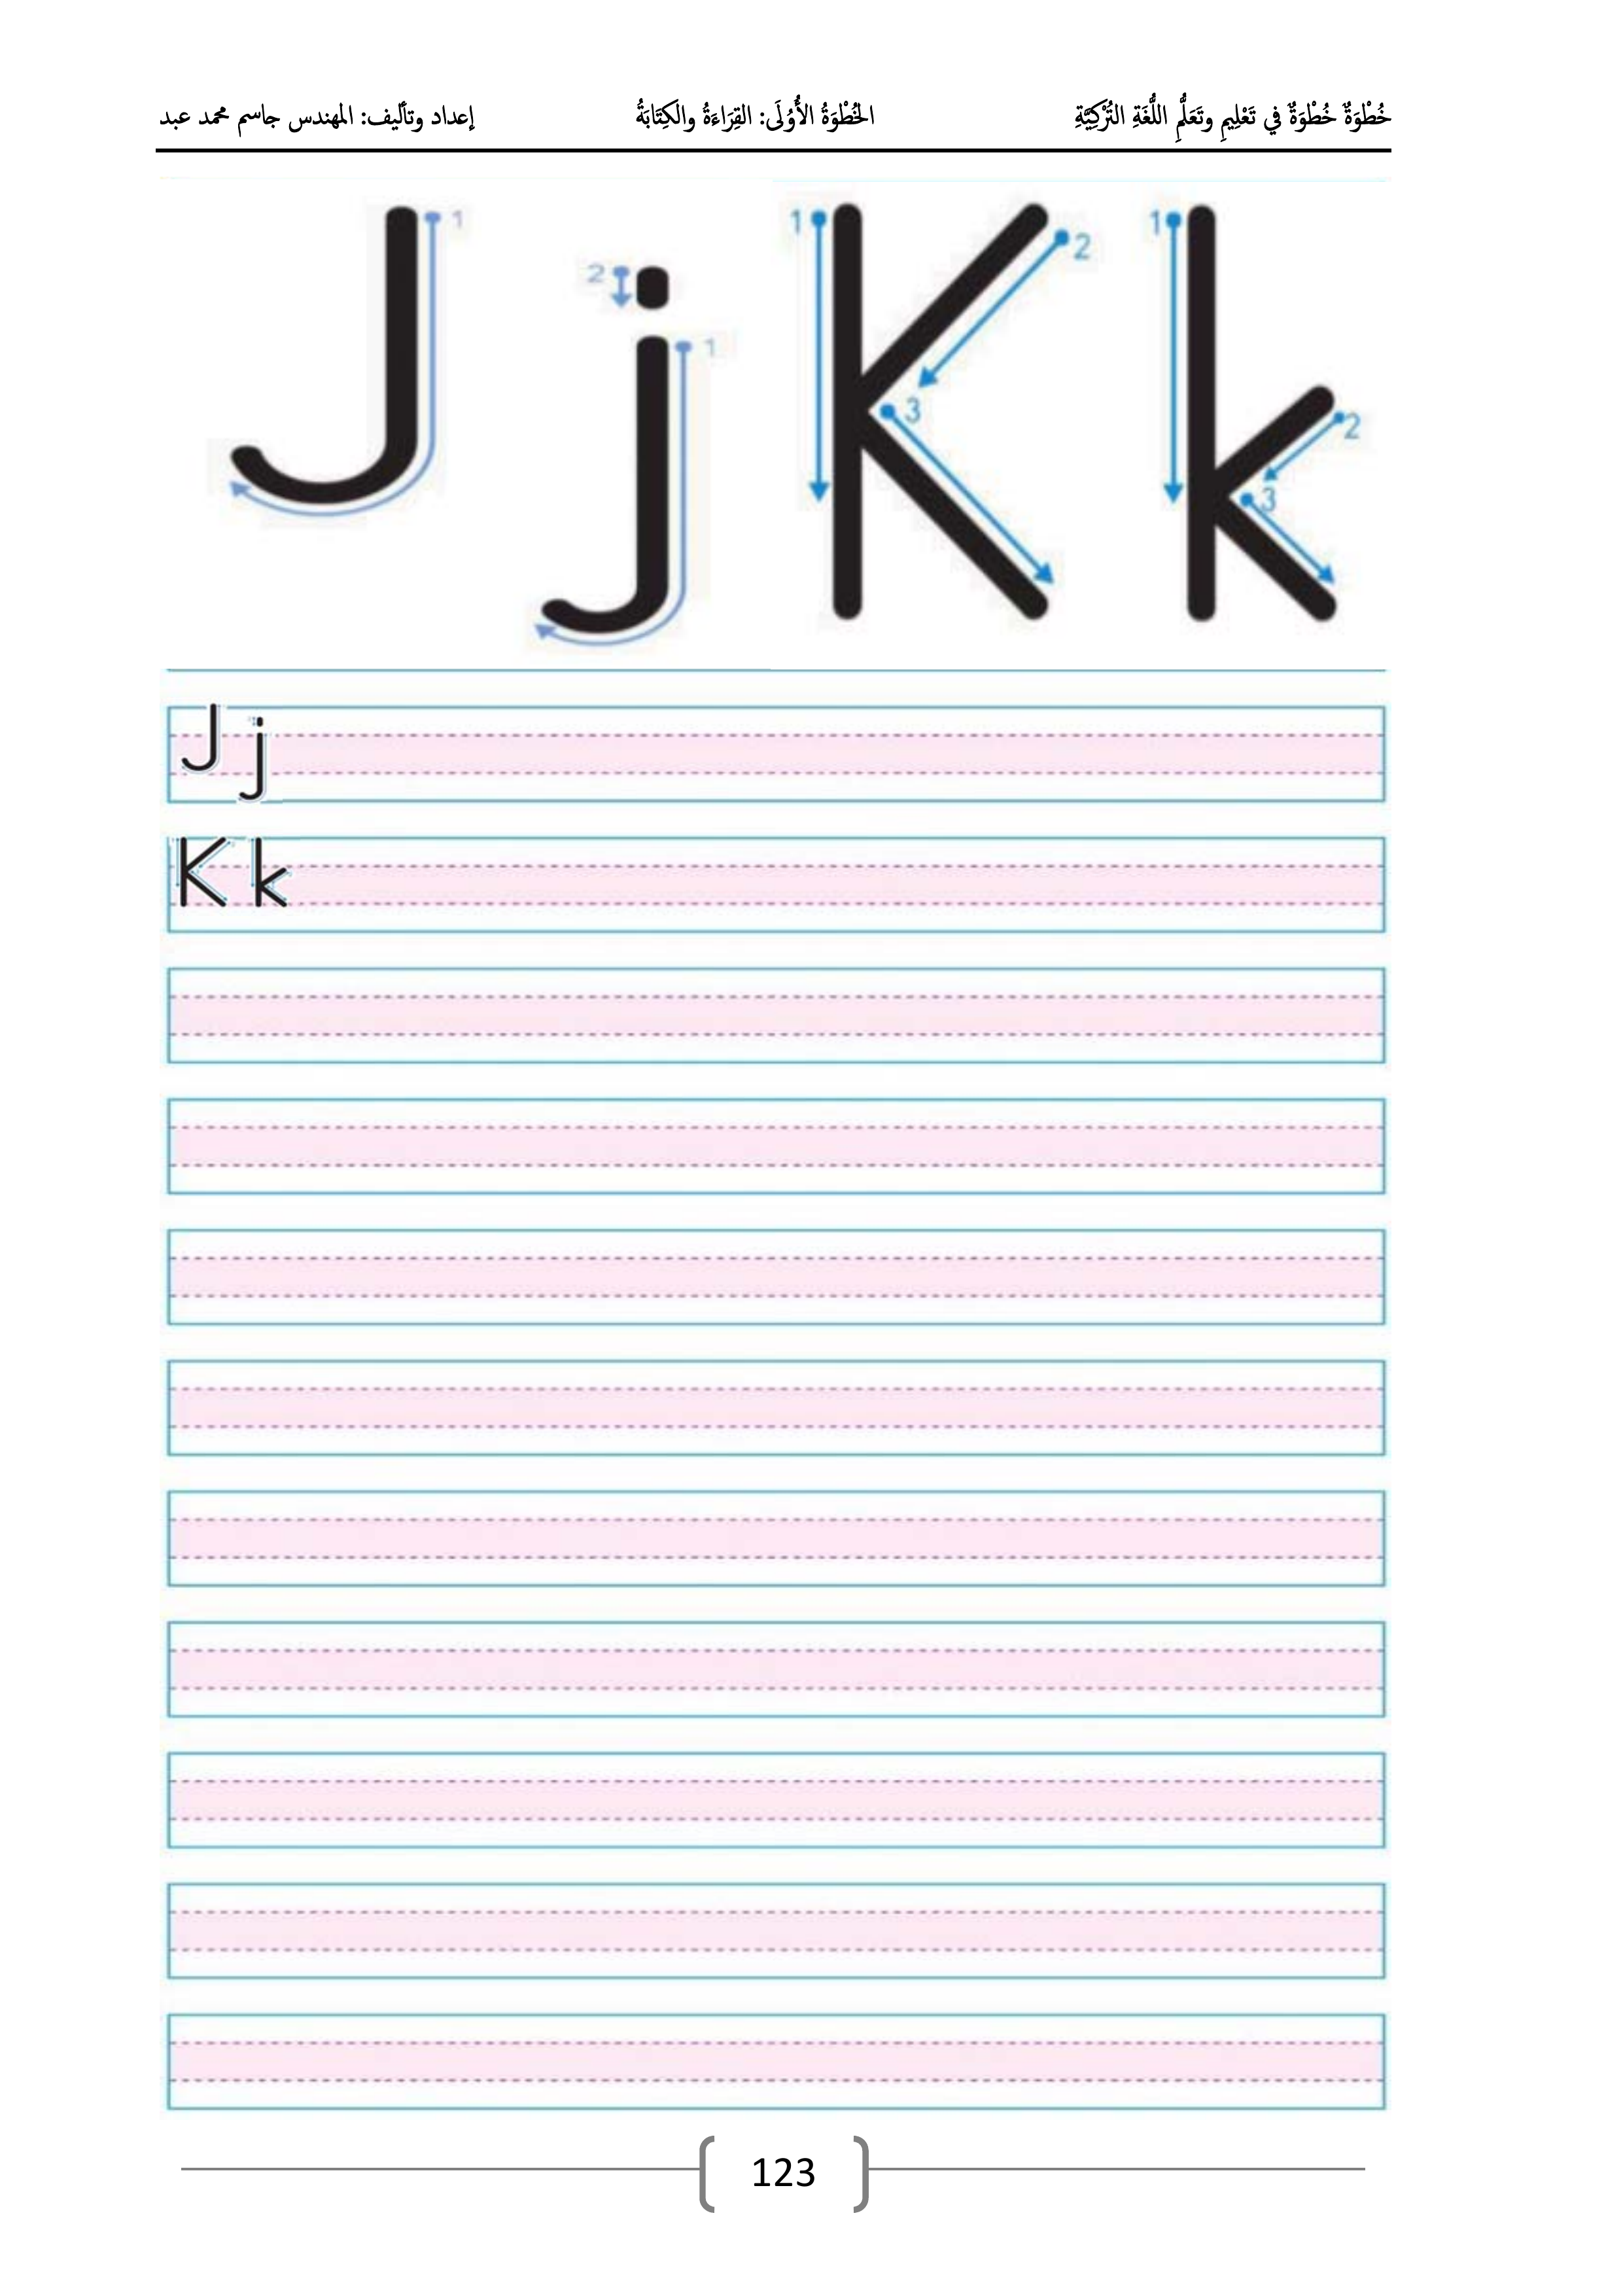 خُطْوَةٌ خُطْوَةٌ في تَعْلِيمِ وتَعَلُّمِ اللُّغَةِ التُّرْكِيَّةِ الخُطْوَةُ الأُوْلَى: القِرَاءَةُ والكِتَابَةُ إعداد وتأليف: المهندس جاسم محمد عبد
J j K k
1 2 1 1 2 3 1 2 3
J j
K k
123